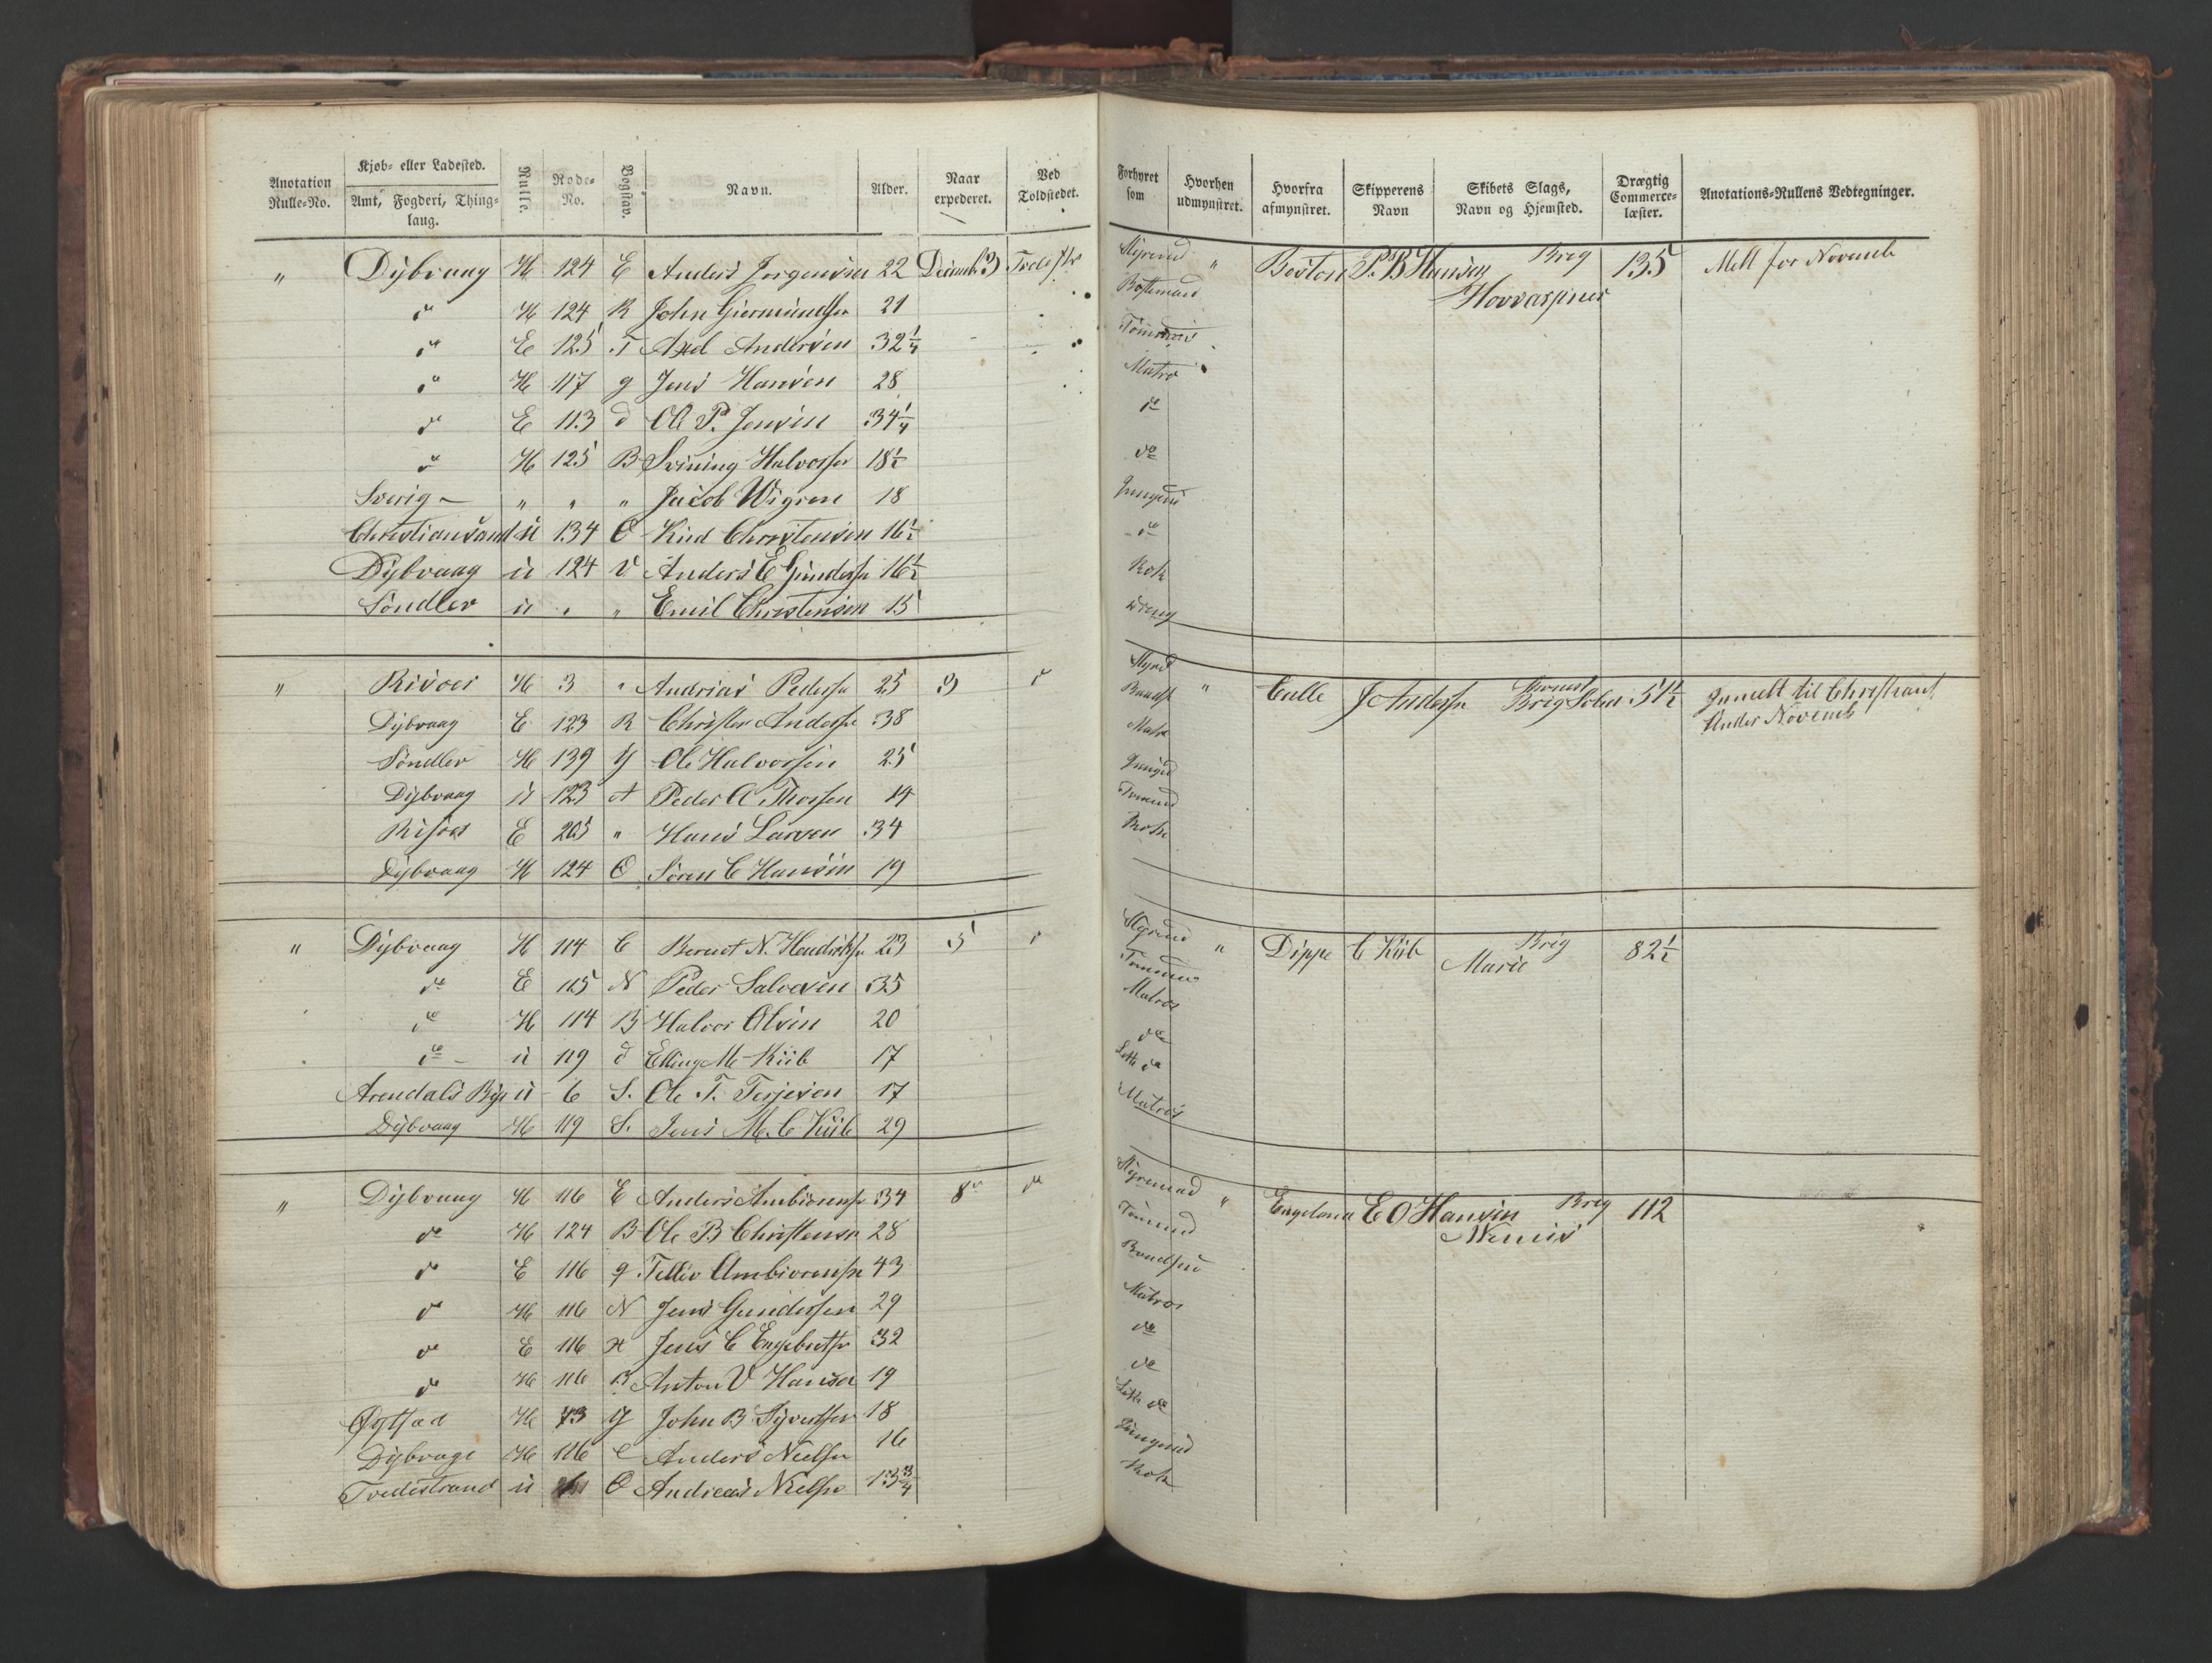 Anotation Rulle-No. | Kjøb- eller Ladested. Amt, Fogderi, Thinglaug. | Rulle. | Rode-No. | Bogstav. | Navn. | Alder. | Naar expederet. | Ved Toldstedet. | Forhyret som | Hvorhen udmynstret. | Hvorfra afmynstret. | Skipperens Navn | Skibets Slags, Navn og Hjemsted. | Drægtig Commerce-læster. | Anotations-Rullens Vedtegninger.
" | Dybvaag | H | 124 | E | Anders Jørgensen | 22 | Decemb 3 | | Styrmd | " | Boston | P. B Hansen | Brig Hovvarpner | 135 | Mell for Novemb
do | H | 124 | R | John Giermundsen | 21 | Bostemand
do | E | 125 | T | Axel Andersen | 32 1/4 | Tømmerm
do | H | 117 | g | Jens Hansen | 28 | Matro
do | E | 113 | d | Ole P. Jensen | 34 1/4 | do
do | H | 125 | B | Svining Halvorsen | 18 1/2 | do
Sverig | " | " | " | Jacob Wigren | 18 | Jungmd
Christiansand | u | 134 | O | Knd Christensen | 16 1/2 | do
Dybvaag | u | 124 | V | Anders E Gundersen | 16 1/2 | Kok
Søndlev | u | " | " | Emil Christensen | 15 | dreng
" | Risøer | H | 3 | " | Andrias Pedersen | 25 | 3 | do | Styrmd | " | Calle | J Andersen | Brig Solid | 51 1/2 | Jnmelt til Christiansand under Novemb
Dybvaag | E | 123 | R | Christen Andersen | 38 | Baadsm
Søndlev | H | 139 | Y | Ole Halvorsen | 25 | Matro
Dybvaag | u | 123 | A | Peder A Thorsen | 14 | Jungmd
Risøer | E | 205 | " | Hans Larsen | 34 | Tømmd
Dybvaag | H | 124 | O | Søren C Hansen | 19 | Kok
" | Dybvaag | H | 114 | C | Berent N. Hendriksen | 23 | 5 | do | Styrmd | " | Dippe | C Kiib | Brig Marie | 82 1/2
do | E | 115 | N | Peder Salvesen | 35 | Tømmer
do | H | 114 | B | Halvor Olsen | 20 | Matros
do | u | 119 | d | Elling M Kiib | 17 | do
Arendals By | u | 6 | S. | Ole T. Terjesen | 17 | Let do
Dybvaag | H | 119 | S. | Jens M. C Kiib | 29 | Matros
" | Dybvaag | H | 116 | E | Anders Ambiørnsen | 34 | 8de | do | Styrmand | " | Engeland | E O Hansen | Brig Nemeis | 112
do | H | 124 | B | Ole B Christensen | 28 | Tømmd
do | E | 116 | g | Tellev Ambiørnsen | 43 | Baadsmd
do | H | 116 | N | Jens Gundersen | 29 | Matros
do | E | 116 | H | Jens C Engebretsen | 32 | do
do | H | 116 | B | Anton V Hansen | 19 | do
Øistad | H | 73 | Y | John B Syvertsen | 18 | Let do
Dybvaag | H | 116 | C | Anders Nielsen | 16 | Jungmd
Tvedestrand | u | | O | Andreas Nielsen | 13 3/4 | Kok